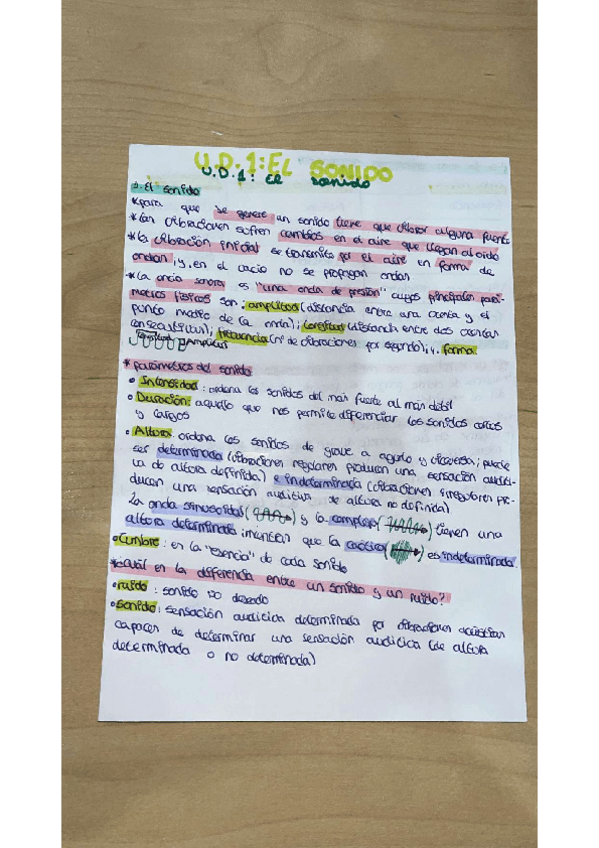 U.D.1: EL SONIDO
U.D.1: el sonido
1. El sonido
*para que se genere un sonido tiene que vibrar alguna fuente
*las vibraciones sufren cambios en el aire que llegan al oído
*la vibración inicial se transmite por el aire en forma de
ondas, y, en el vacío no se propagan ondas
*La onda sonora es "una onda de presión" cuyos principales pará-
metros físicos son: amplitud (distancia entre una cresta y el
punto medio de la onda); longitud (distancia entre dos crestas
consecutivas); frecuencia (nº de vibraciones por segundo); y forma
longitud amplitud
*parámetros del sonido
• Intensidad: ordena los sonidos del más fuerte al más débil
• Duración: aquello que nos permite diferenciar los sonidos cortos
y largos
• Altura: ordena los sonidos de grave a agudo y viceversa; puede
ser determinada (vibraciones regulares producen una sensación auditi-
va de altura definida) e indeterminada (vibraciones irregulares pro-
ducen una sensación auditiva de altura no definida)
La onda sinusoidal () y la compleja () tienen una
altura determinada mientras que la caótica () es indeterminada
• Timbre: es la "esencia" de cada sonido
*¿cuál es la diferencia entre un sonido y un ruido?
• ruido: sonido no deseado
• sonido: sensación auditiva determinada por vibraciones acústicas
capaces de determinar una sensación auditiva (de altura
determinada o no determinada)